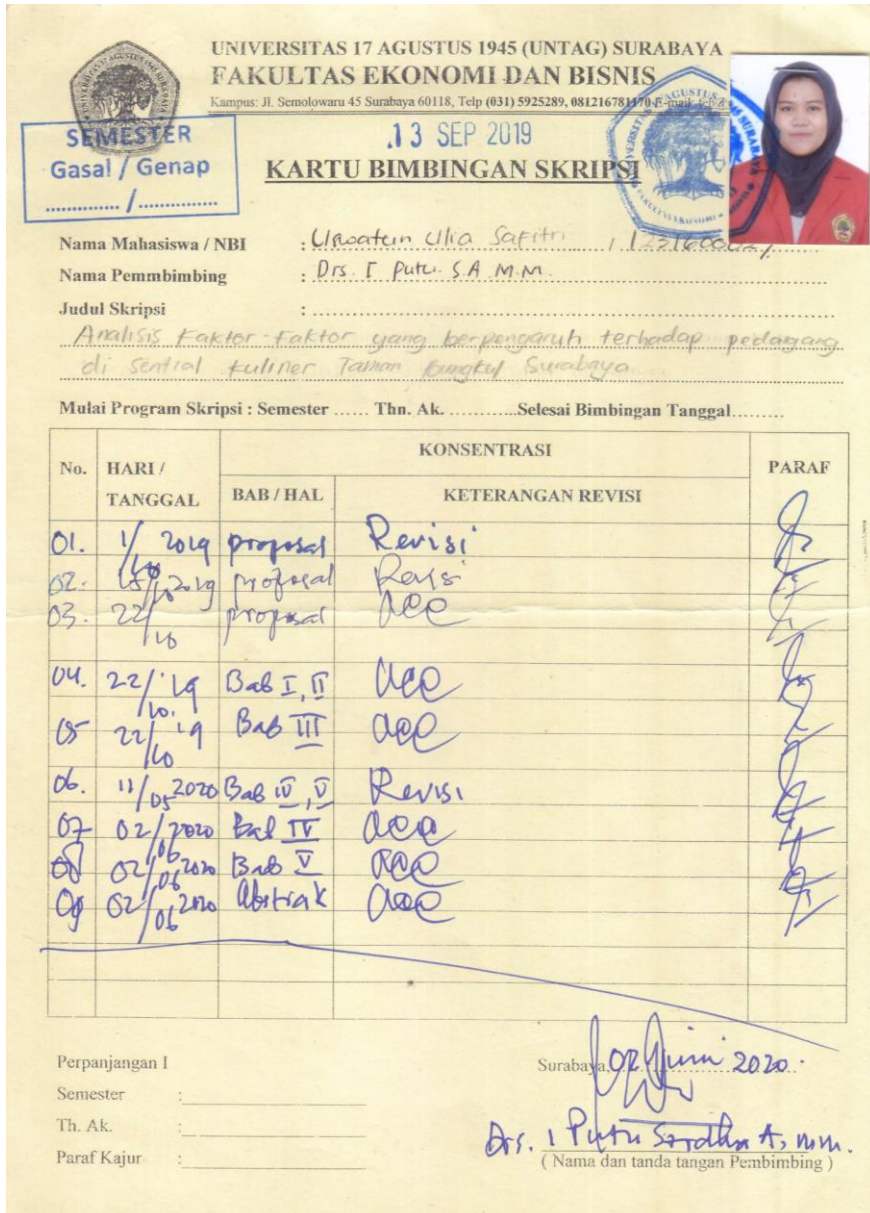 UNIVERSITAS 17 AGUSTUS 1945 (UNTAG) SURABAYA
FAKULTAS EKONOMI DAN BISNIS
Kampus: Jl. Semolowaru 45 Surabaya 60118, Telp (031) 5925289, 081216781170 E-mail:
SEMESTER
Gasal / Genap
............. / ...............
13 SEP 2019
KARTU BIMBINGAN SKRIPSI
Nama Mahasiswa / NBI : Ulia Safitri /
Nama Pemmbimbing : Drs. I Putu S.A M.M.
Judul Skripsi :
Analisis Faktor-Faktor yang berpengaruh terhadap pedagang
di Sentral kuliner Taman Bungkul Surabaya
Mulai Program Skripsi : Semester ...... Thn. Ak. ...........Selesai Bimbingan Tanggal.........
No. HARI / TANGGAL KONSENTRASI PARAF
BAB / HAL KETERANGAN REVISI
01. 1/10 2019 proposal Revisi
02. 15/10 2019 proposal Revisi
03. 22/10 proposal acc
04. 22/10 '19 Bab I, II acc
05 22/10 '19 Bab III acc
06. 11/05 2020 Bab IV, V Revisi
07 02/06 2020 Bab IV acc
08 02/06 2020 Bab V acc
09 02/06 2020 Abstrak acc
Perpanjangan I
Semester :
Th. Ak. :
Paraf Kajur :
Surabaya, 02 Juni 2020.
Drs. I Putu A, MM.
( Nama dan tanda tangan Pembimbing )